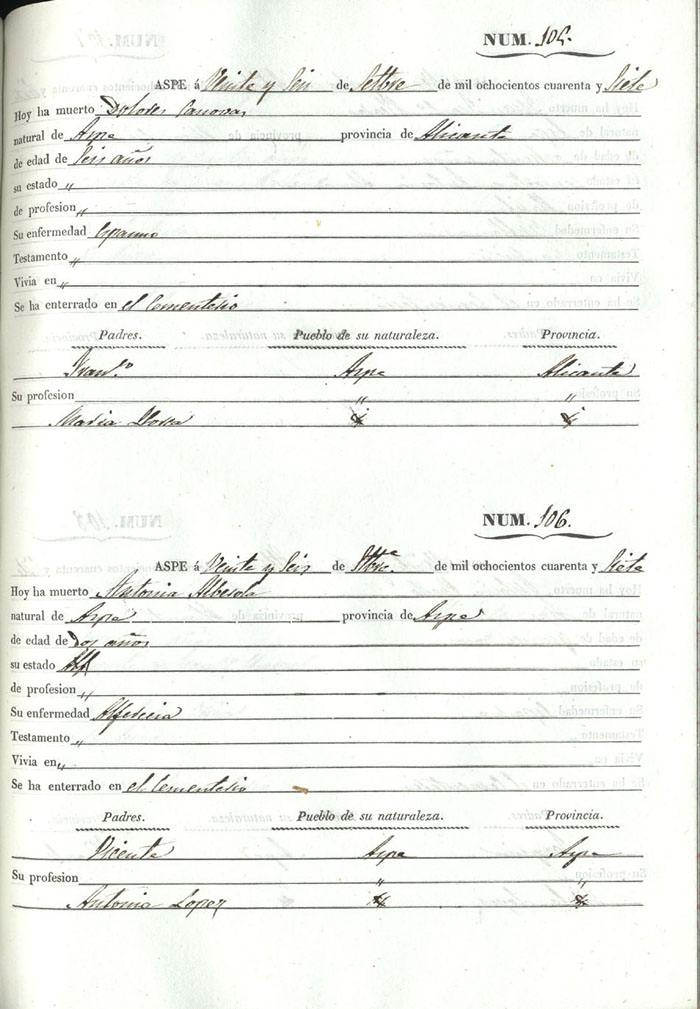 NUM. 105.
ASPE á Veinte y seis de Setbre de mil ochocientos cuarenta y Siete
Hoy ha muerto Dolores Canovas
natural de Aspe provincia de Alicante
de edad de seis años
su estado "
de profesion "
Su enfermedad Espasmo
Testamento "
Vivia en "
Se ha enterrado en el Cementerio
Padres. Pueblo de su naturaleza. Provincia.
Fran.co Aspe Alicante
Su profesion " "
Maria
NUM. 106.
ASPE á Veinte y seis de Stbre. de mil ochocientos cuarenta y Siete
Hoy ha muerto Antonia Alberola
natural de Aspe provincia de Aspe
de edad de Dos años
su estado
de profesion "
Su enfermedad Alferecia
Testamento "
Vivia en "
Se ha enterrado en el Cementerio
Padres. Pueblo de su naturaleza. Provincia.
Vicente Aspe Aspe
Su profesion " "
Antonia Lopez